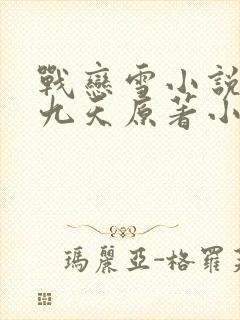 戰戀雪小說
九天原著小
瑪麗亞-格羅